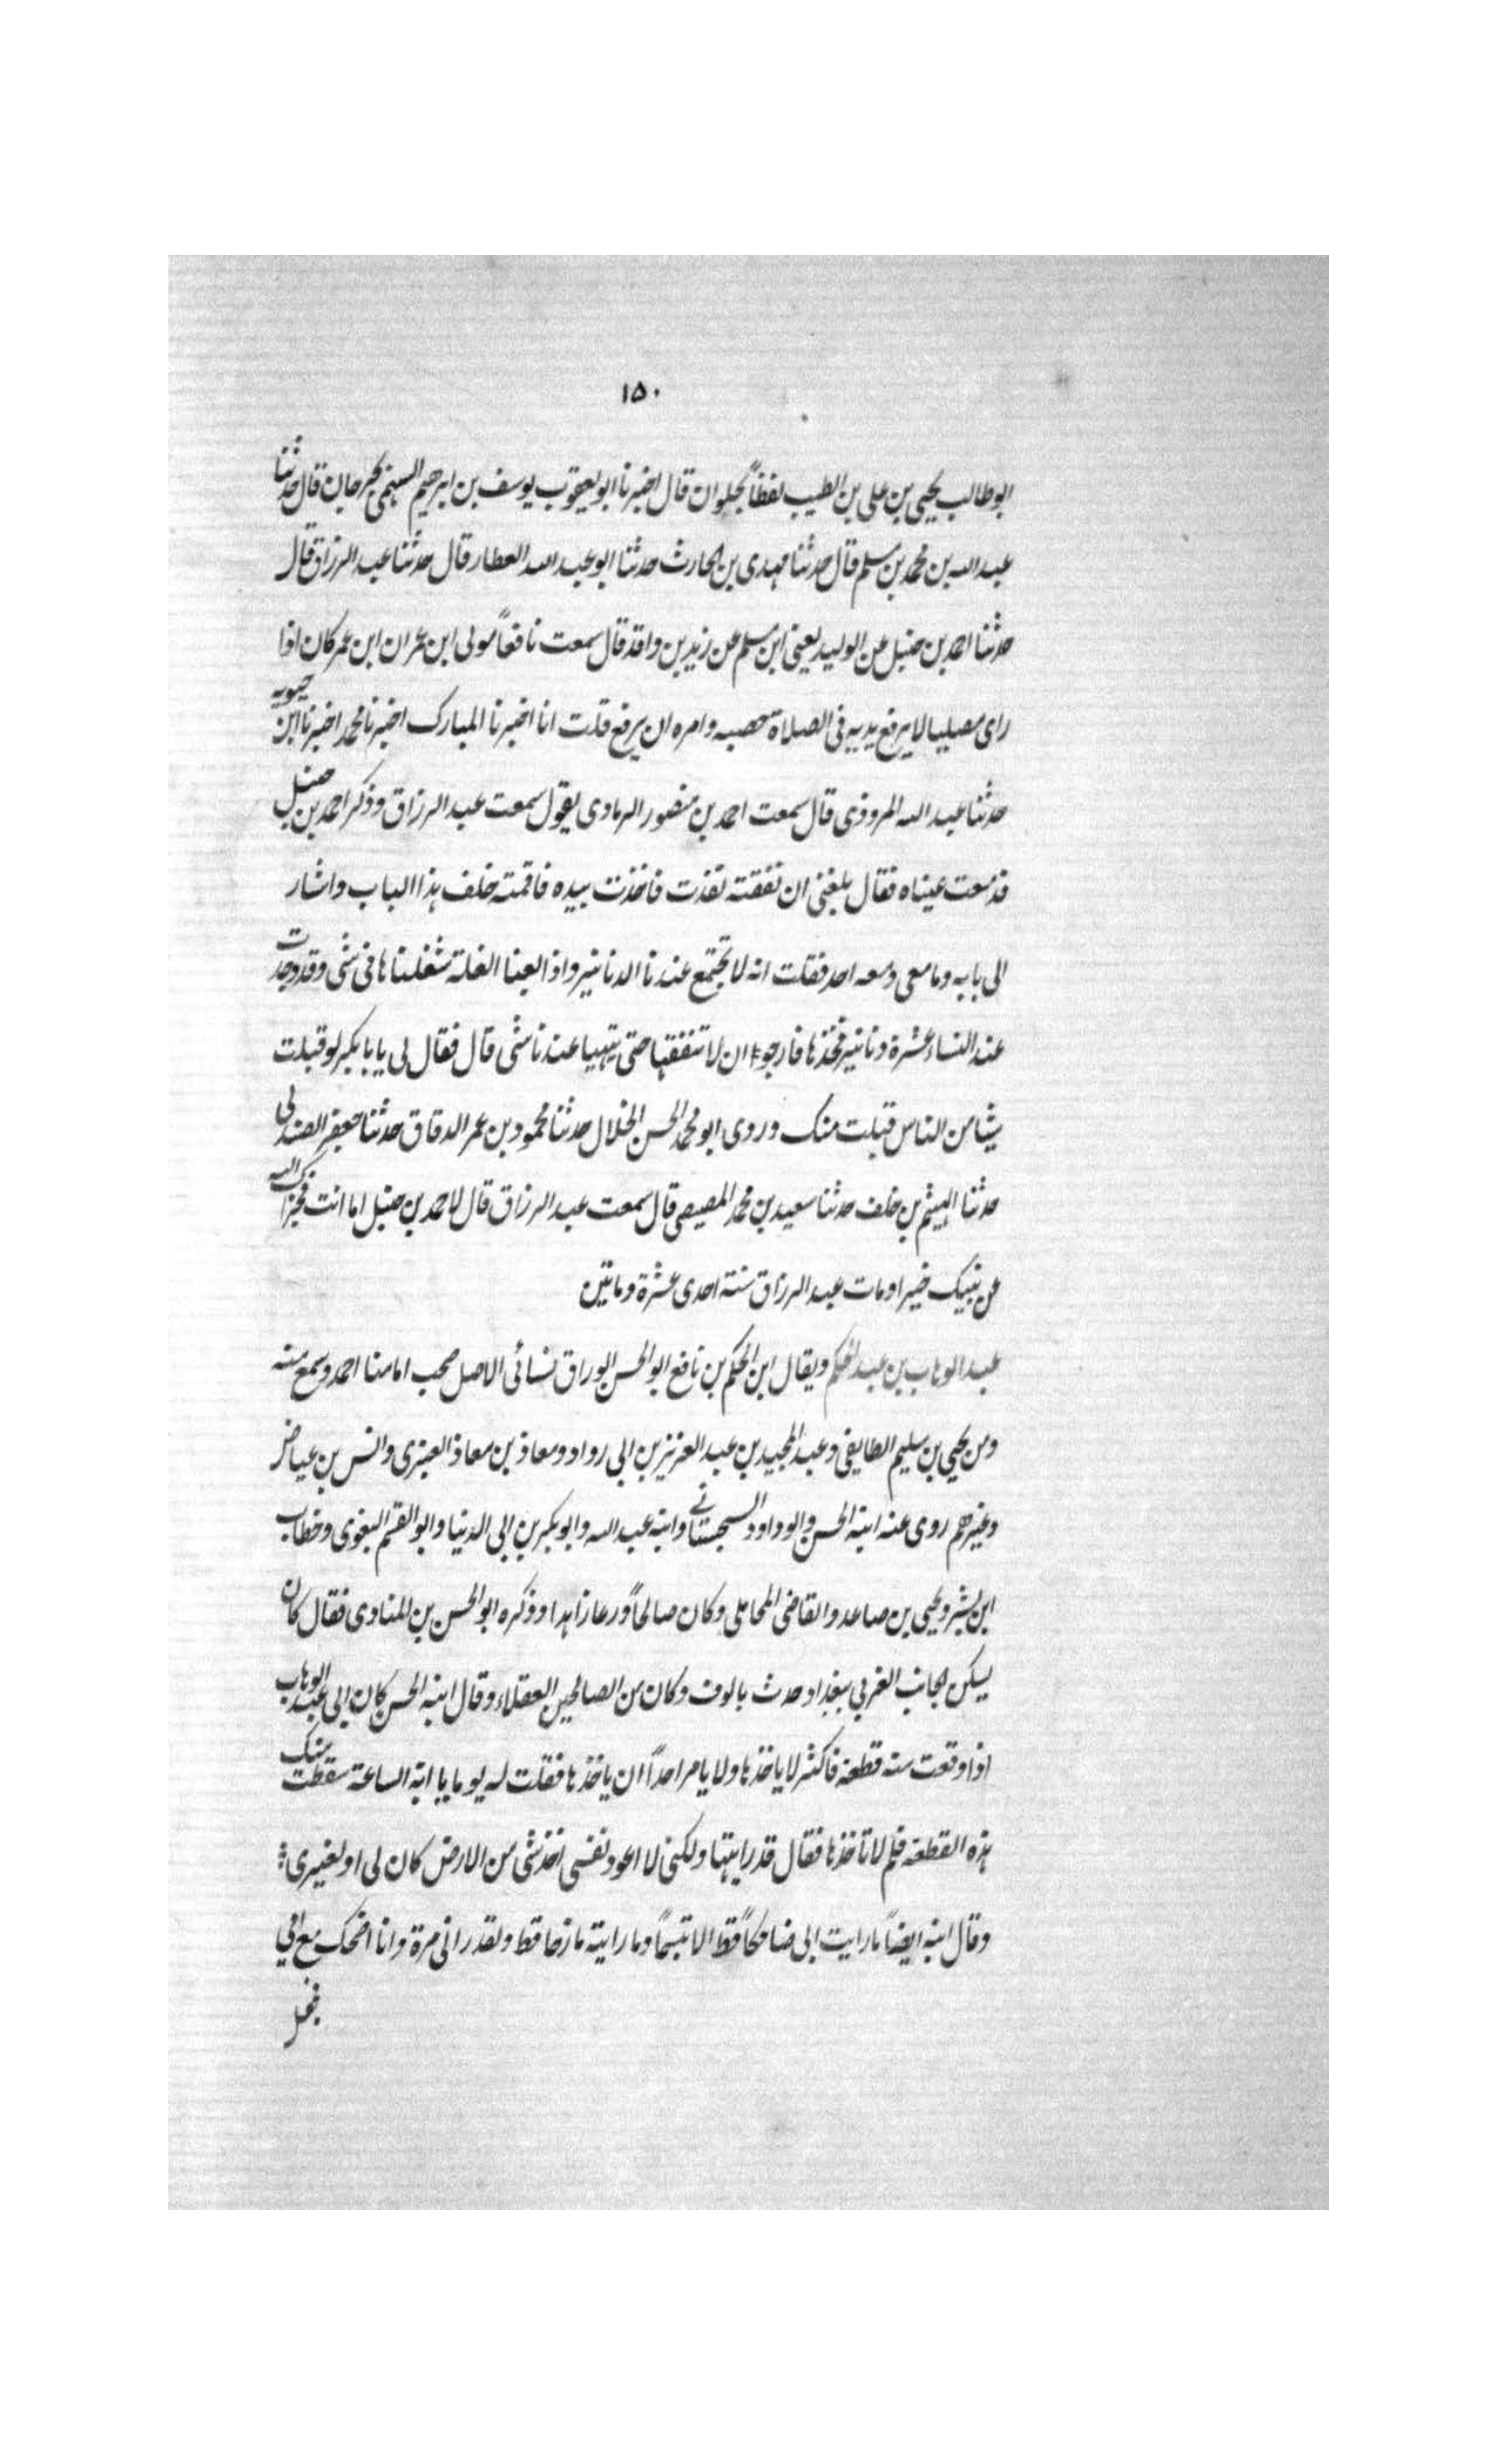 ١٥٠
ابو طالب يحيى بن على بن الطيب لفظاً بحلوان قال اخبرنا ابو يعقوب يوسف بن ابرهيم السهمى بجرجان قال حدثنا
عبد الله بن محمد بن مسلم قال حدثنا مهدى بن الحارث حدثنا ابو عبد الله العطار قال حدثنا عبد الرزاق قال
حدثنا احمد بن حنبل عن الوليد يعنى ابن مسلم عن زيد بن واقد قال سمعت نافعاً مولى ابن عمر ان ابن عمر كان اذا
راى مصليا لا يرفع يديه فى الصلاة حصبه وامره ان يرفع قلت انا اخبرنا المبارك اخبرنا محمد اخبرنا ابن حيويه
حدثنا عبد الله المروذى قال سمعت احمد بن منصور الرمادى يقول سمعت عبد الرزاق وذكر احمد بن حنبل
فدمعت عيناه فقال بلغنى ان نفقته نفذت فاخذت بيده فاقمته خلف هذا الباب واشار
الى بابه وما معى ومعه احد فقلت انه لا تجتمع عندنا الدنانير واذا بعنا الغلة شغلناها فى شى وقد وجدت
عند النساء عشرة دنانير فخذها فارجو ان لا تنفقها حتى يتهيا عندنا شى قال فقال لى يا با بكر لو قبلت
شيا من الناس قبلت منك وروى ابو محمد الحسن الخلال حدثنا محمود بن عمر الدقاق حدثنا جعفر الصندلى
حدثنا الهيثم بن خلف حدثنا سعيد بن محمد المصيصى قال سمعت عبد الرزاق قال لاحمد بن حنبل اما انت فجزاك الله
عن نبيك خيرا ومات عبد الرزاق سنة احدى عشرة وماتين
عبد الوهاب بن عبد الحكم ويقال ابن الحكم بن نافع ابو الحسن الوراق نسائى الاصل صحب امامنا احمد وسمع منه
ومن يحيى بن سليم الطايفى وعبد المجيد بن عبد العزيز بن ابى رواد ومعاذ بن معاذ العنبرى وانس بن عياض
وغيرهم روى عنه ابنه الحسن وابو داود السجستانے وابنه عبد الله وابو بكر بن ابى الدنيا وابو القسم البغوى وخطاب
ابن بشر ويحيى بن صاعد والقاضى المحاملى وكان صالحاً ورعا زاهدا وذكره ابو الحسن بن المنادى فقال كان
يسكن بجانب الغربي ببغداد حدث بالوف وكان من الصالحين العقلاء وقال ابنه الحسن كان ابى عبد الوهاب
اذا وقعت منه قطعة فاكثر لا ياخذها ولا يامر احداً ان ياخذها فقلت له يوما يا ابة الساعة سقطت منك
هذه القطعة فلم لا تاخذها فقال قد رايتها ولكنى لا اعود نفسى اخذ شى من الارض كان لى او لغيرى
وقال ابنه ايضاً ما رايت ابى ضاحكاً قط الا تبسماً وما رايته مازحا قط ولقد رانى مرة وانا اضحك مع امى
فجعل